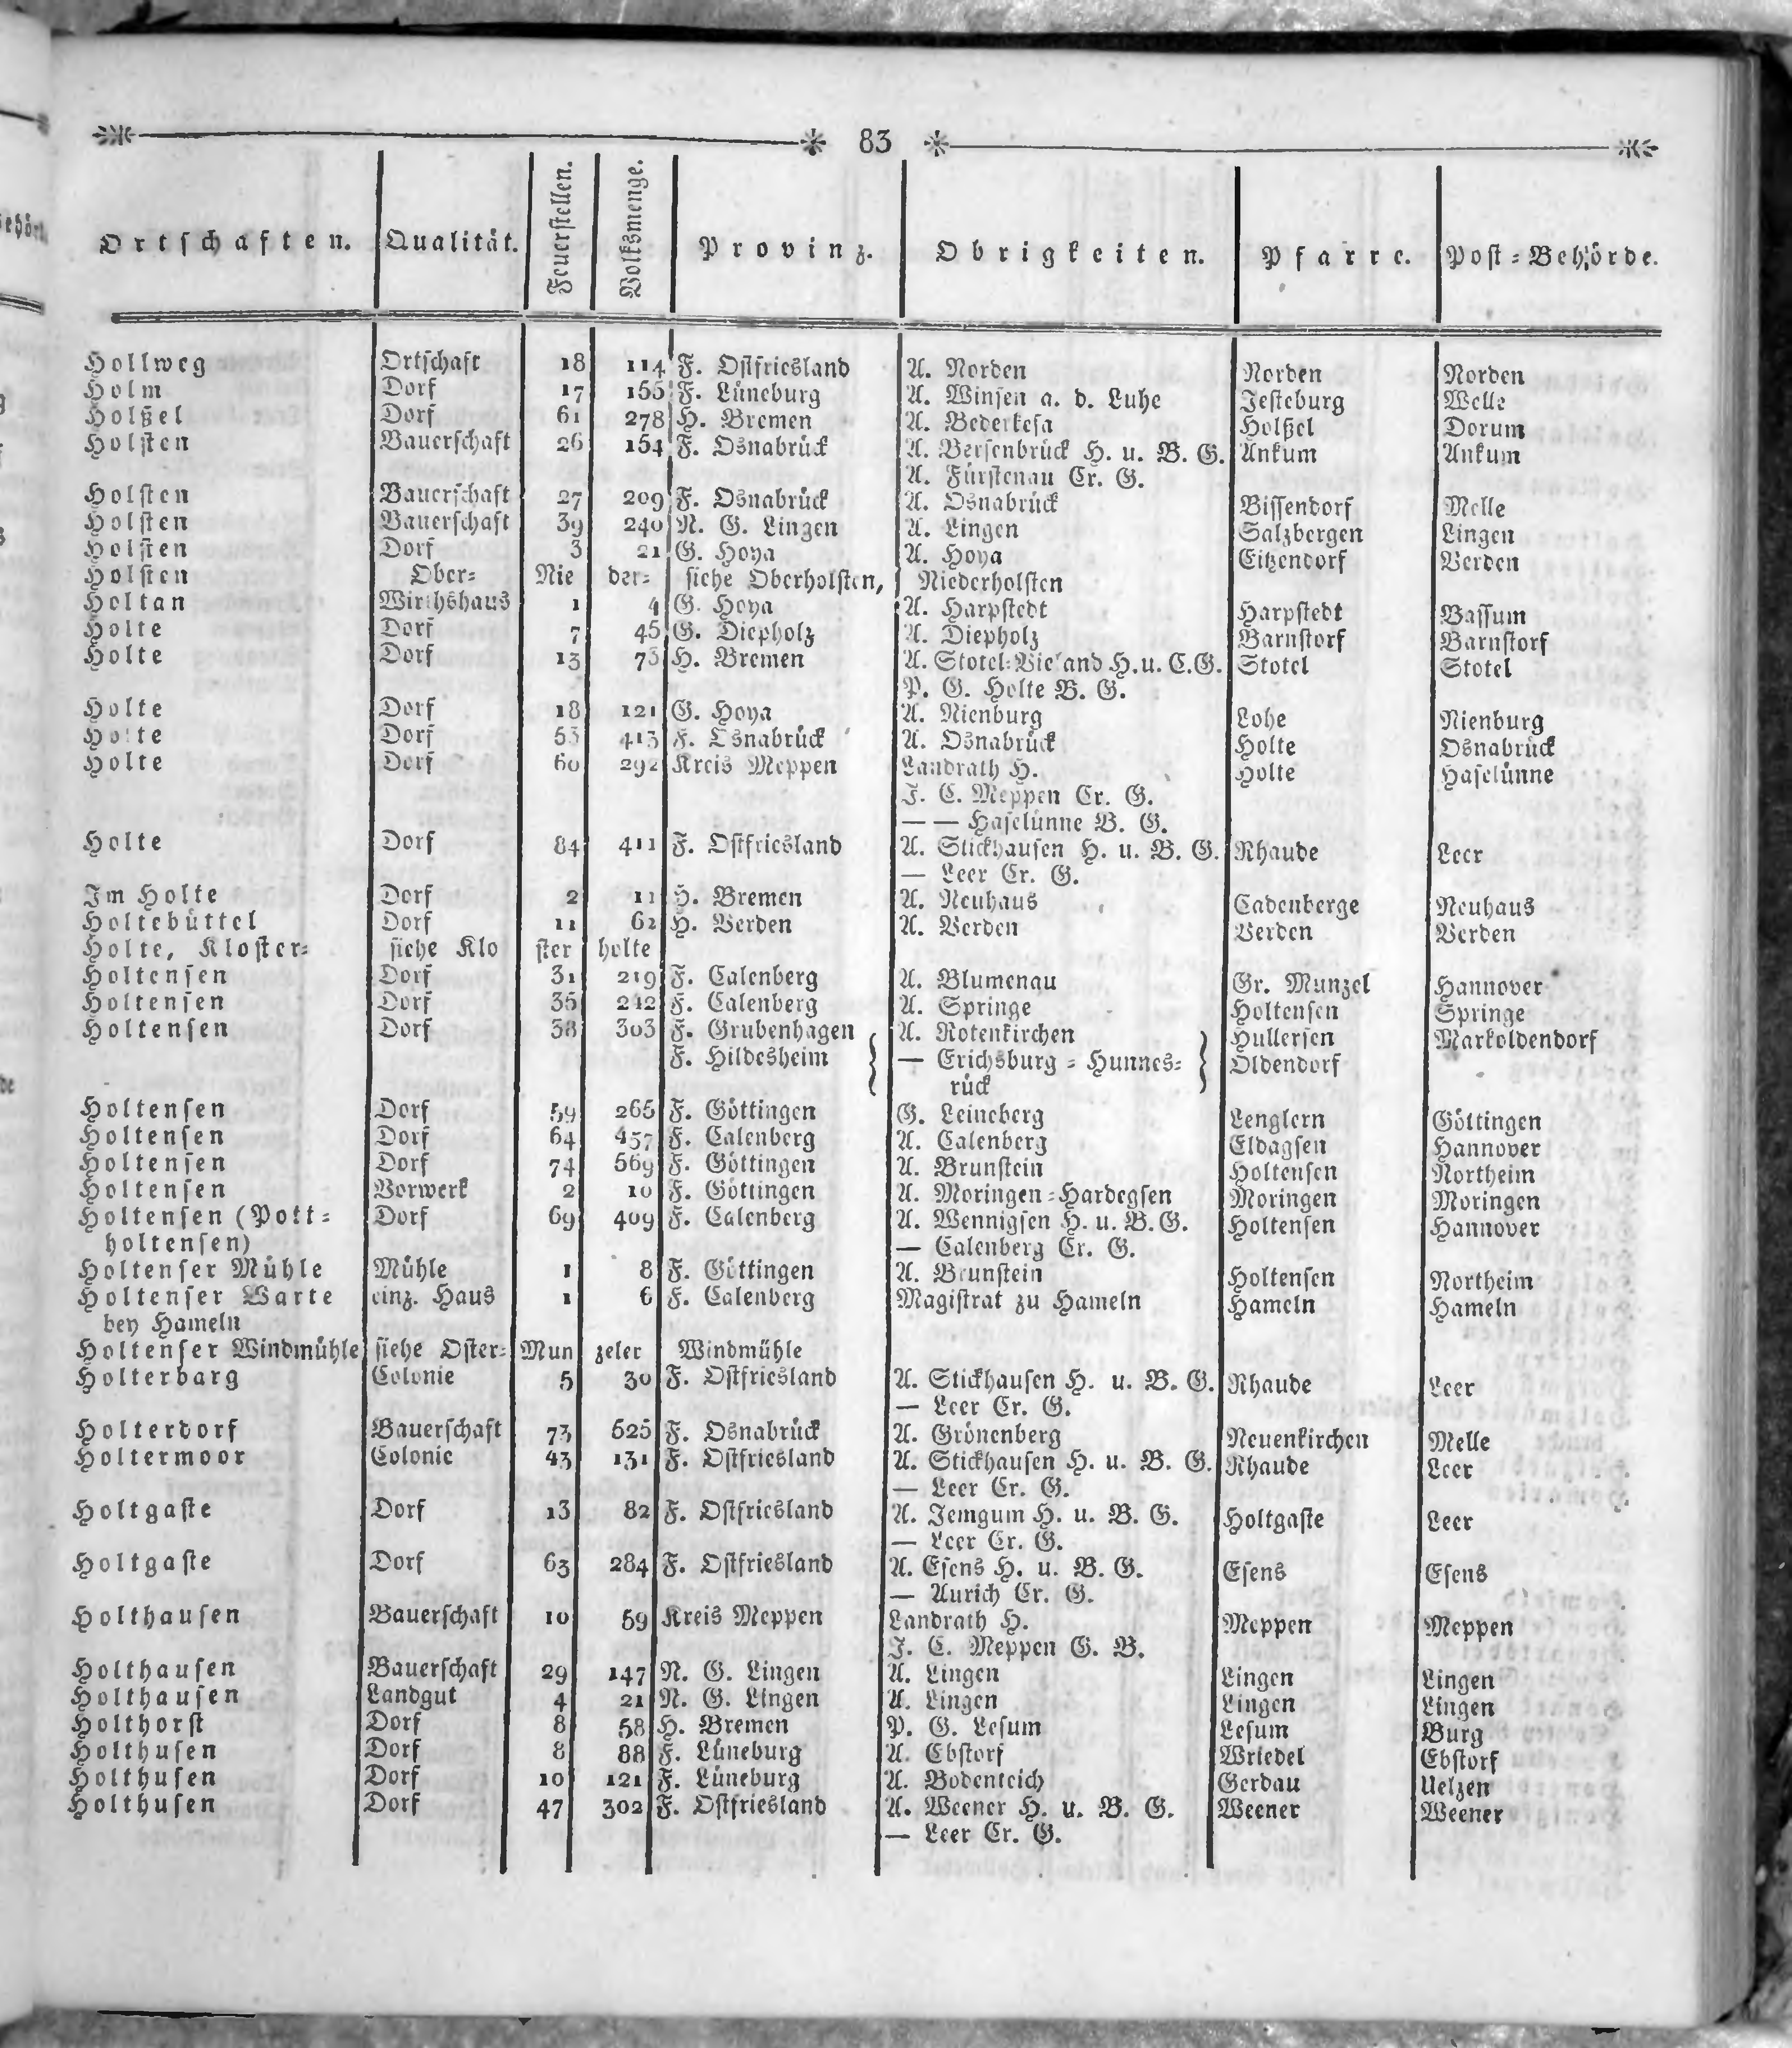 83
Ortschaften. Qualität. Feuerstellen. Volksmenge. Provinz. Obrigkeiten. Pfarre. Post-Behörde.
Hollweg Ortschaft 18 114 F. Ostfriesland A. Norden Norden Norden
Holm Dorf 17 155 F. Lüneburg A. Winsen a. d. Luhe Jesteburg Welle
Holßel Dorf 61 278 H. Bremen A. Bederkesa Holßel Dorum
Holsten Bauerschaft 26 154 F. Osnabrück A. Bersenbrück H. u. B. G. Ankum Ankum
A. Fürstenau Cr. G.
Holsten Bauerschaft 27 209 F. Osnabrück A. Osnabrück Bissendorf Melle
Holsten Bauerschaft 39 240 N. G. Lingen A. Lingen Salzbergen Lingen
Holsten Dorf 3 21 G. Hoya A. Hoya Eitzendorf Verden
Holsten Ober- Nie der- siehe Oberholsten, Niederholsten
Holtan Wirthshaus 1 4 G. Hoya A. Harpstedt Harpstedt Bassum
Holte Dorf 7 45 G. Diepholz A. Diepholz Barnstorf Barnstorf
Holte Dorf 13 75 H. Bremen A. Stotel-Vieland H. u. C. G. Stotel Stotel
P. G. Holte B. G.
Holte Dorf 18 121 G. Hoya A. Nienburg Lohe Nienburg
Holte Dorf 55 413 F. Osnabrück A. Osnabrück Holte Osnabrück
Holte Dorf 60 292 Kreis Meppen Landrath H. Holte Haselünne
J. C. Meppen Cr. G.
— — Haselünne B. G.
Holte Dorf 84 411 F. Ostfriesland A. Stickhausen H. u. B. G. Rhaude Leer
— Leer Cr. G.
Im Holte Dorf 2 11 H. Bremen A. Neuhaus Cadenberge Neuhaus
Holtebüttel Dorf 11 62 H. Verden A. Verden Verden Verden
Holte, Kloster- siehe Klo ster holte
Holtensen Dorf 31 219 F. Calenberg A. Blumenau Gr. Munzel Hannover
Holtensen Dorf 35 242 F. Calenberg A. Springe Holtensen Springe
Holtensen Dorf 38 303 F. Grubenhagen { A. Rotenkirchen } Hullersen Markoldendorf
F. Hildesheim — Erichsburg-Hunnes- Oldendorf
rück
Holtensen Dorf 59 265 F. Göttingen G. Leineberg Lenglern Göttingen
Holtensen Dorf 64 457 F. Calenberg A. Calenberg Eldagsen Hannover
Holtensen Dorf 74 569 F. Göttingen A. Brunstein Holtensen Northeim
Holtensen Vorwerk 2 10 F. Göttingen A. Moringen-Hardegsen Moringen Moringen
Holtensen (Pott- Dorf 69 409 F. Calenberg A. Wennigsen H. u. B. G. Holtensen Hannover
holtensen) — Calenberg Cr. G.
Holtenser Mühle Mühle 1 8 F. Göttingen A. Brunstein Holtensen Northeim
Holtenser Warte einz. Haus 1 6 F. Calenberg Magistrat zu Hameln Hameln Hameln
bey Hameln
Holtenser Windmühle siehe Oster- Mun zeler Windmühle
Holterbarg Colonie 5 30 F. Ostfriesland A. Stickhausen H. u. B. G. Rhaude Leer
— Leer Cr. G.
Holterdorf Bauerschaft 73 525 F. Osnabrück A. Grönenberg Neuenkirchen Melle
Holtermoor Colonie 43 131 F. Ostfriesland A. Stickhausen H. u. B. G. Rhaude Leer
— Leer Cr. G.
Holtgaste Dorf 13 82 F. Ostfriesland A. Jemgum H. u. B. G. Holtgaste Leer
— Leer Cr. G.
Holtgaste Dorf 63 284 F. Ostfriesland A. Esens H. u. B. G. Esens Esens
— Aurich Cr. G.
Holthausen Bauerschaft 10 59 Kreis Meppen Landrath H. Meppen Meppen
J. C. Meppen G. B.
Holthausen Bauerschaft 29 147 N. G. Lingen A. Lingen Lingen Lingen
Holthausen Landgut 4 21 N. G. Lingen A. Lingen Lingen Lingen
Holthorst Dorf 8 58 H. Bremen P. G. Lesum Lesum Burg
Holthusen Dorf 8 88 F. Lüneburg A. Ebstorf Wriedel Ebstorf
Holthusen Dorf 10 121 F. Lüneburg A. Bodenteich Gerdau Uelzen
Holthusen Dorf 47 302 F. Ostfriesland A. Weener H. u. B. G. Weener Weener
— Leer Cr. G.